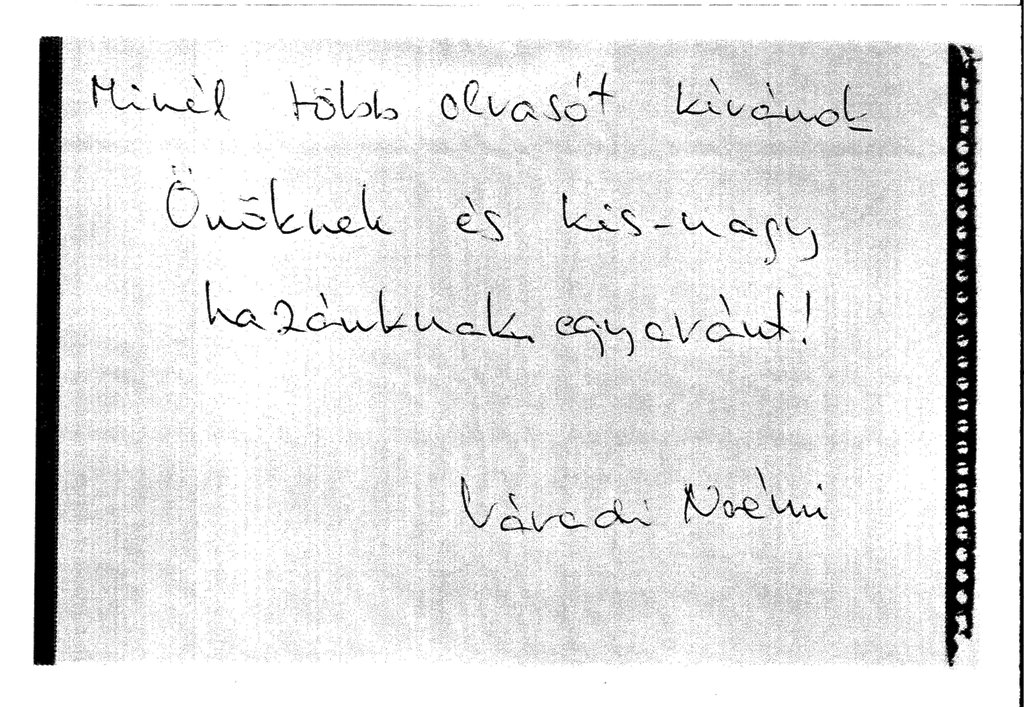 Minél több olvasót kívánok
Önöknek és kis-nagy
hazánknak egyaránt!
Váradi Noémi